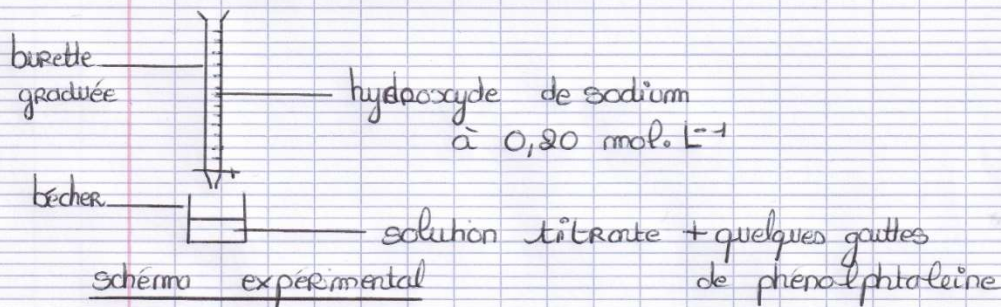 burette
graduée
hydroxyde de sodium
à 0,20 mol.L-1
bécher
solution titrante + quelques gouttes
de phénolphtaleine
schéma expérimental